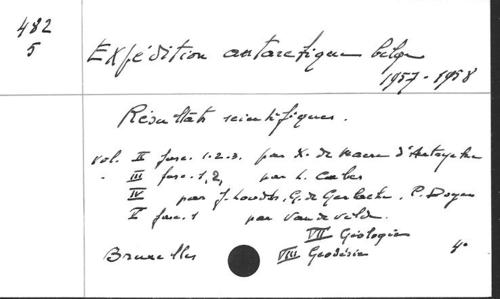 482
5
Expédition antarctique belge
1957-1958
Résultats scientifiques.
vol. II fasc. 1.2.3. par X. de Maere d'Aertrycke
" III fasc. 1,2, par L. Cabes
IV par J. Loodts, G. de Gerlache, P. Doyen
V fasc. 1 par Van de Velde.
VII Géologie
Bruxelles VIII Géodésie 4°